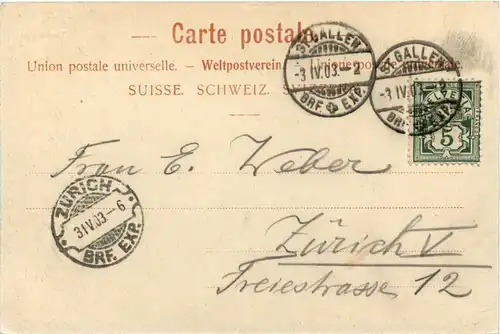 Carte postale.
Union postale universelle. — Weltpostverein. — Unione postale universale.
SUISSE. SCHWEIZ.
ST. GALLEN
-3 IV.03.-2
BRF. EXP.
ST. GALLEN
-3 IV.03.-
BRF. EXP.
5
Frau E. Weber
ZÜRICH
3 IV.03.-6
BRF. EXP.
Zürich V
Freiestrasse 12